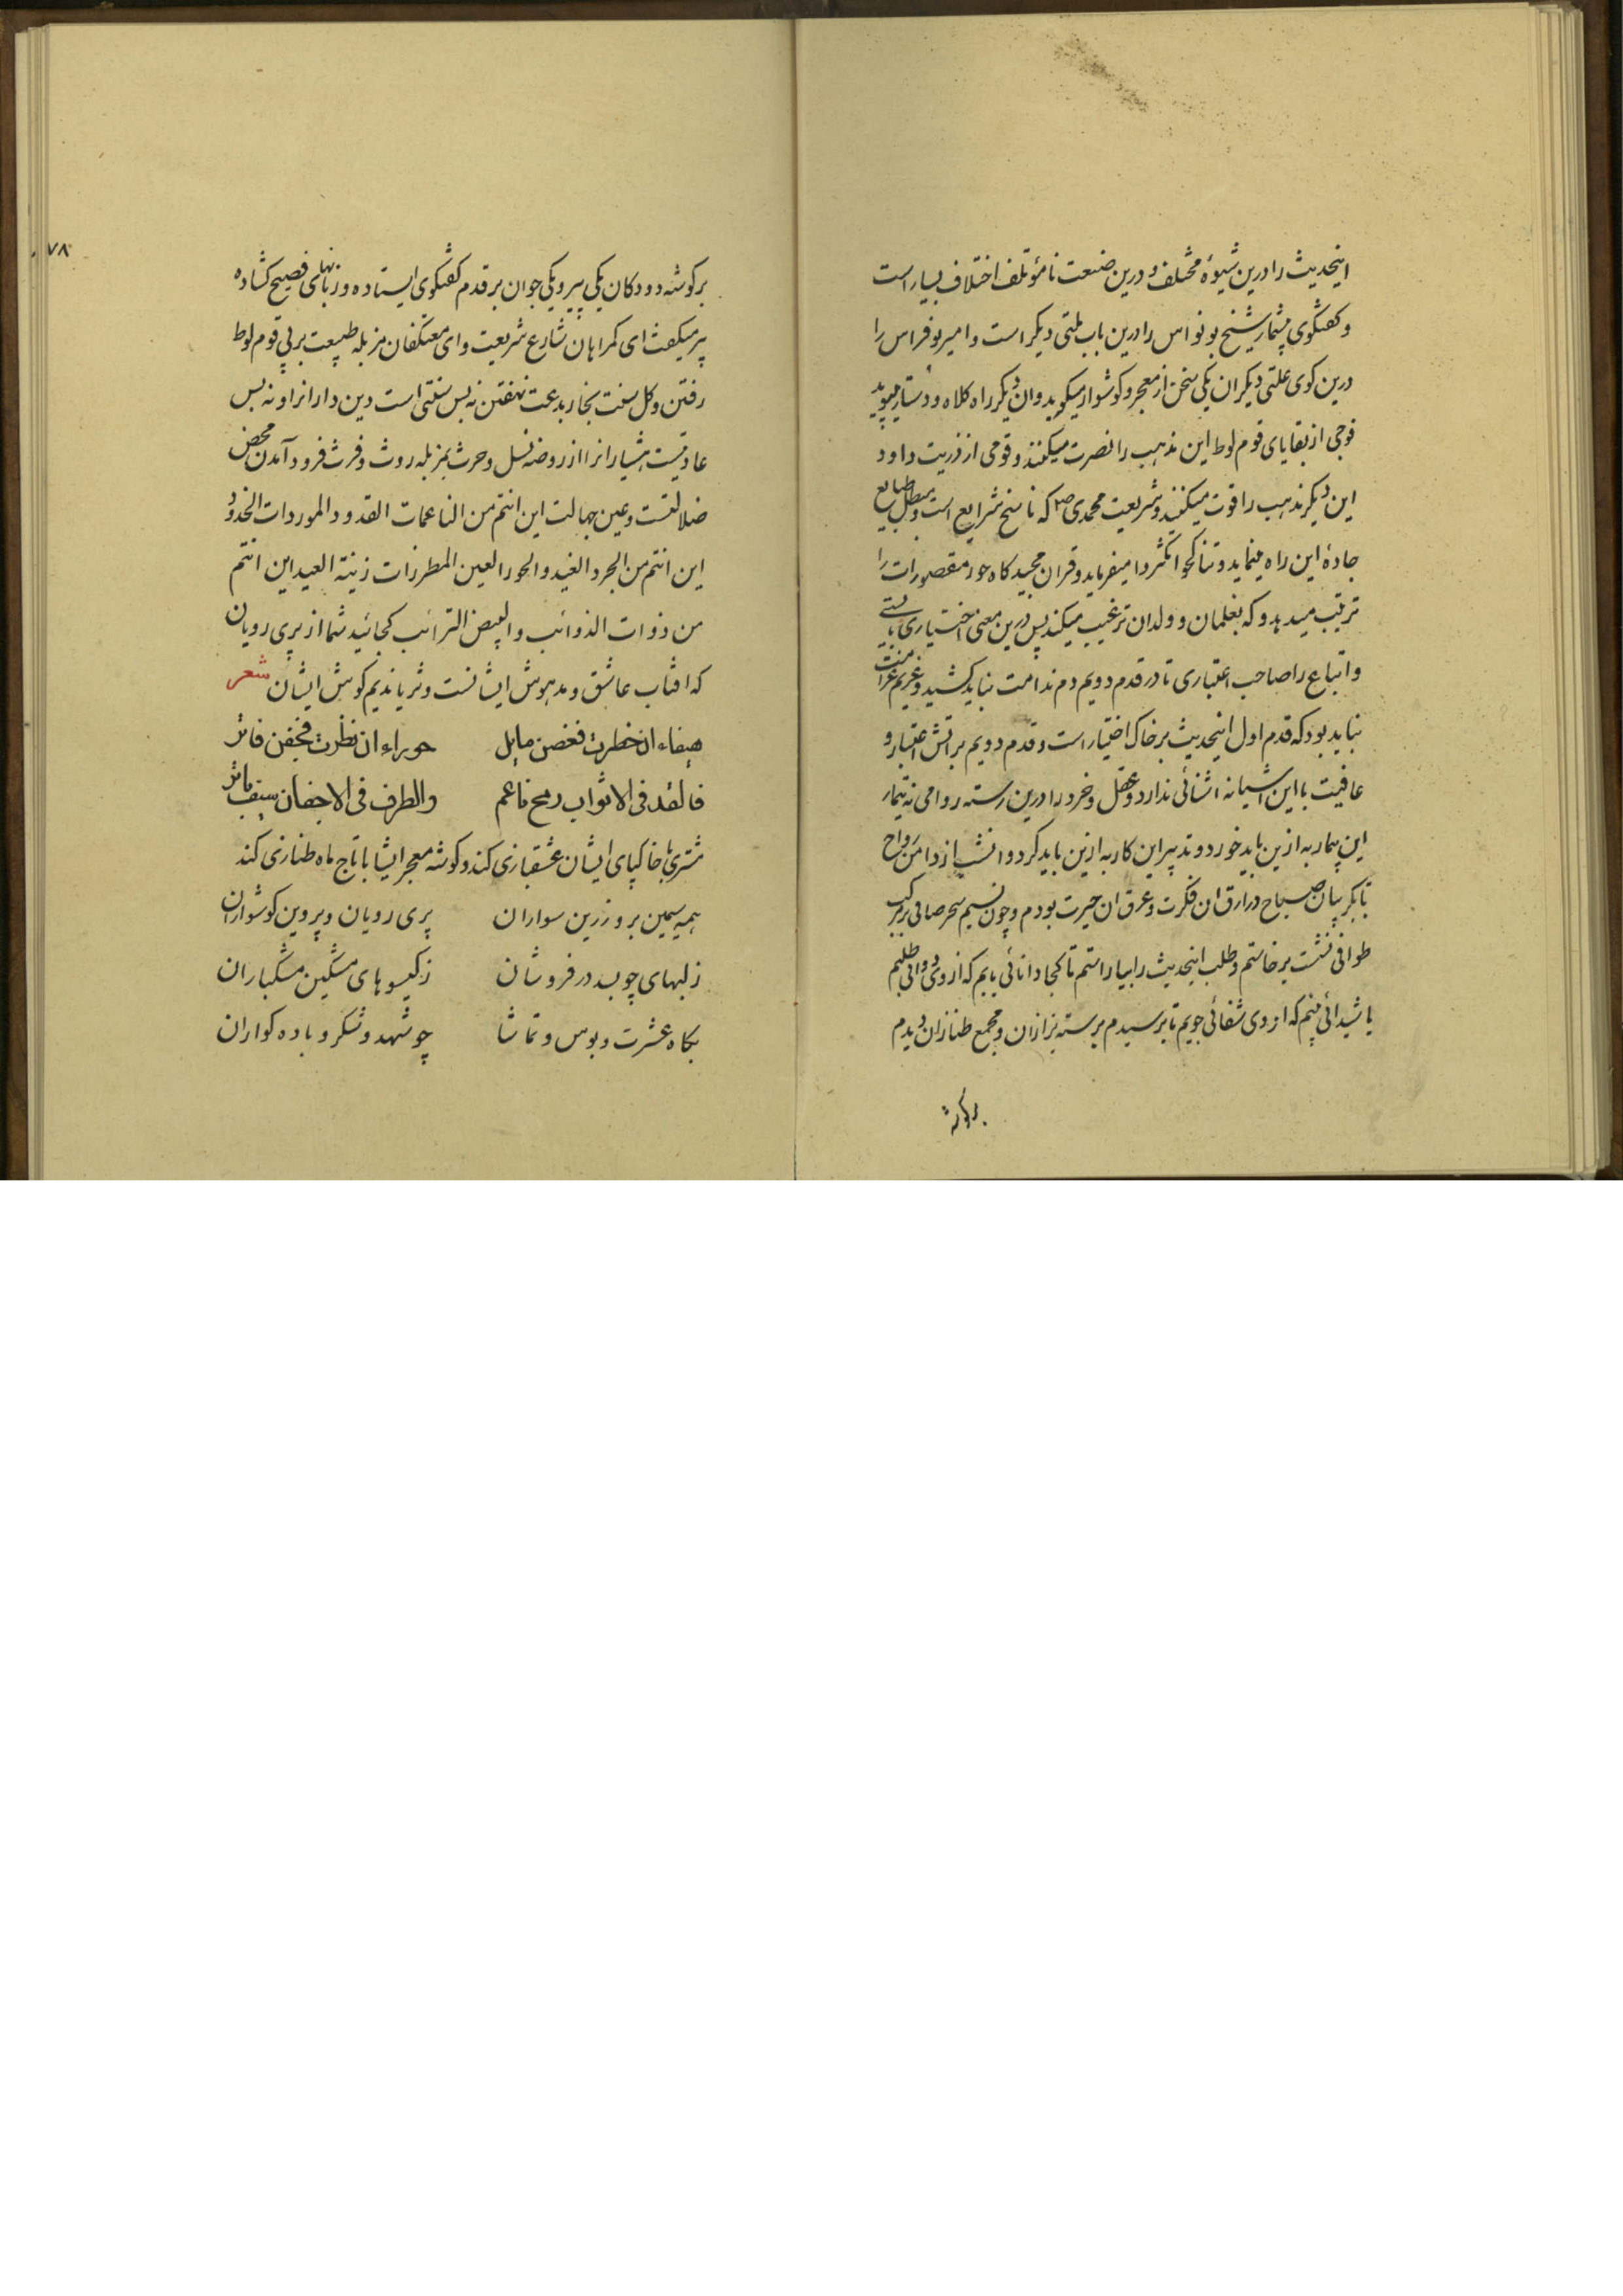 اینحدیث را درین شیوهٔ مختلف و درین ضیعت نامؤتلف اختلاف بسیار است
و کفتکوی بیشمار شیخ بونواس را درین باب ملتی دیکر است و امیر بوفراس را
درین کوی علتی دیکر ان یکی سخن از معجر و کوشوار میکوید وان دیکر راه کلاه و دستار میپوید
فوجی از بقایای قوم لوط این مذهب را نصرت میکنند و قومی از ذریت داود
این دیکر مذهب را قوت میکنند و شریعت محمدی ص که ناسخ شرایع است و مبطل طبایع
جادهٔ این راه مینماید و تناکحوا تکثروا میفرماید و قران مجید کاه حور مقصورات را
ترتیب میدهد و که بغلمان و ولدان ترغیب میکند پس درین معنی اختیاری بایستی
و اتباع را صاحب اعتباری تا در قدم دویم دم ندامت نباید کشید و غریم غرامت
نباید بود که قدم اول اینحدیث بر خاک اختیار است و قدم دویم بر آتش اعتبار و
عافیت با این آشیانه اشنائی ندارد و عقل و خرد را درین رسته روا می نه تیمار
این بیمار به ازین باید خورد و تدبیر این کار به ازین باید کرد و انشب از دامن رواح
تا بکریبان صباح در ارق ان فکرت و عرق ان حیرت بودم و چون نسیم سحر صافی بر مرکب
طوافی نشست برخاستم و طلب اینحدیث را بیاراستم تا کجا دانائی یابم که از وی دوائی طلبم
یا شیدائی بینم که از وی شفائی جویم تا برسیدم برسته بزازان و مجمع طنازان دیدم
برکوشه
۷۸
برکوشه دو دکان یکی پیر و یکی جوان بر قدم کفتکوی ایستاده و زبانهای فصیح کشاده
پیر میکفت ای کمراهان شارع شریعت و ای معتکفان مزبله طبیعت بر پی قوم لوط
رفتن و کل سنت بخار بدعت نهفتن نه بس سنتی است دین داران را و نه بس
عادتیست هشیارانرا از روضه نسل و حرث بمزبله روث و فرث فرود آمدن محض
ضلالتست و عین جهالت این انتم من الناعمات القدود الموردات الخدود
این انتم من الجرد الغید و الحور العین المطرزات زینة العید این انتم
من ذوات الذوائب و البیض الترائب کجائید شما از پری رویان
که افتاب عاشق و مدهوش ایشانست و ثریا ندیم کوش ایشان شعر
هیفاء ان خطرت فغصن مایل    حوراء ان نظرت فجفن فاتر
فالقد فی الاثواب رمح ناعم    والطرف فی الاجفان سیف باتر
مشتری با خاکپای ایشان عشقبازی کند و کوشه معجر ایشان با تاج ماه طنازی کند
همه سیمین بر و زرین سواران    پری رویان و پروین کوشواران
ز لبهای چو بسد در فروشان    ز کیسوهای مشکین مشکباران
بکاه عشرت و بوس و تماشا    چو شهد و شکر و باده کواران